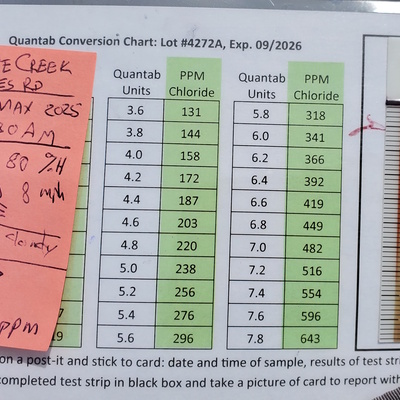 Quantab Conversion Chart: Lot #4272A, Exp. 09/2026
CREEK
RD
2025
AM
80 %H
8 mph
cloudy
PPM
9
Quantab Units PPM Chloride Quantab Units PPM Chloride
3.6 131 5.8 318
3.8 144 6.0 341
4.0 158 6.2 366
4.2 172 6.4 392
4.4 187 6.6 419
4.6 203 6.8 449
4.8 220 7.0 482
5.0 238 7.2 516
5.2 256 7.4 554
5.4 276 7.6 596
5.6 296 7.8 643
on a post-it and stick to card: date and time of sample, results of test stri
completed test strip in black box and take a picture of card to report with